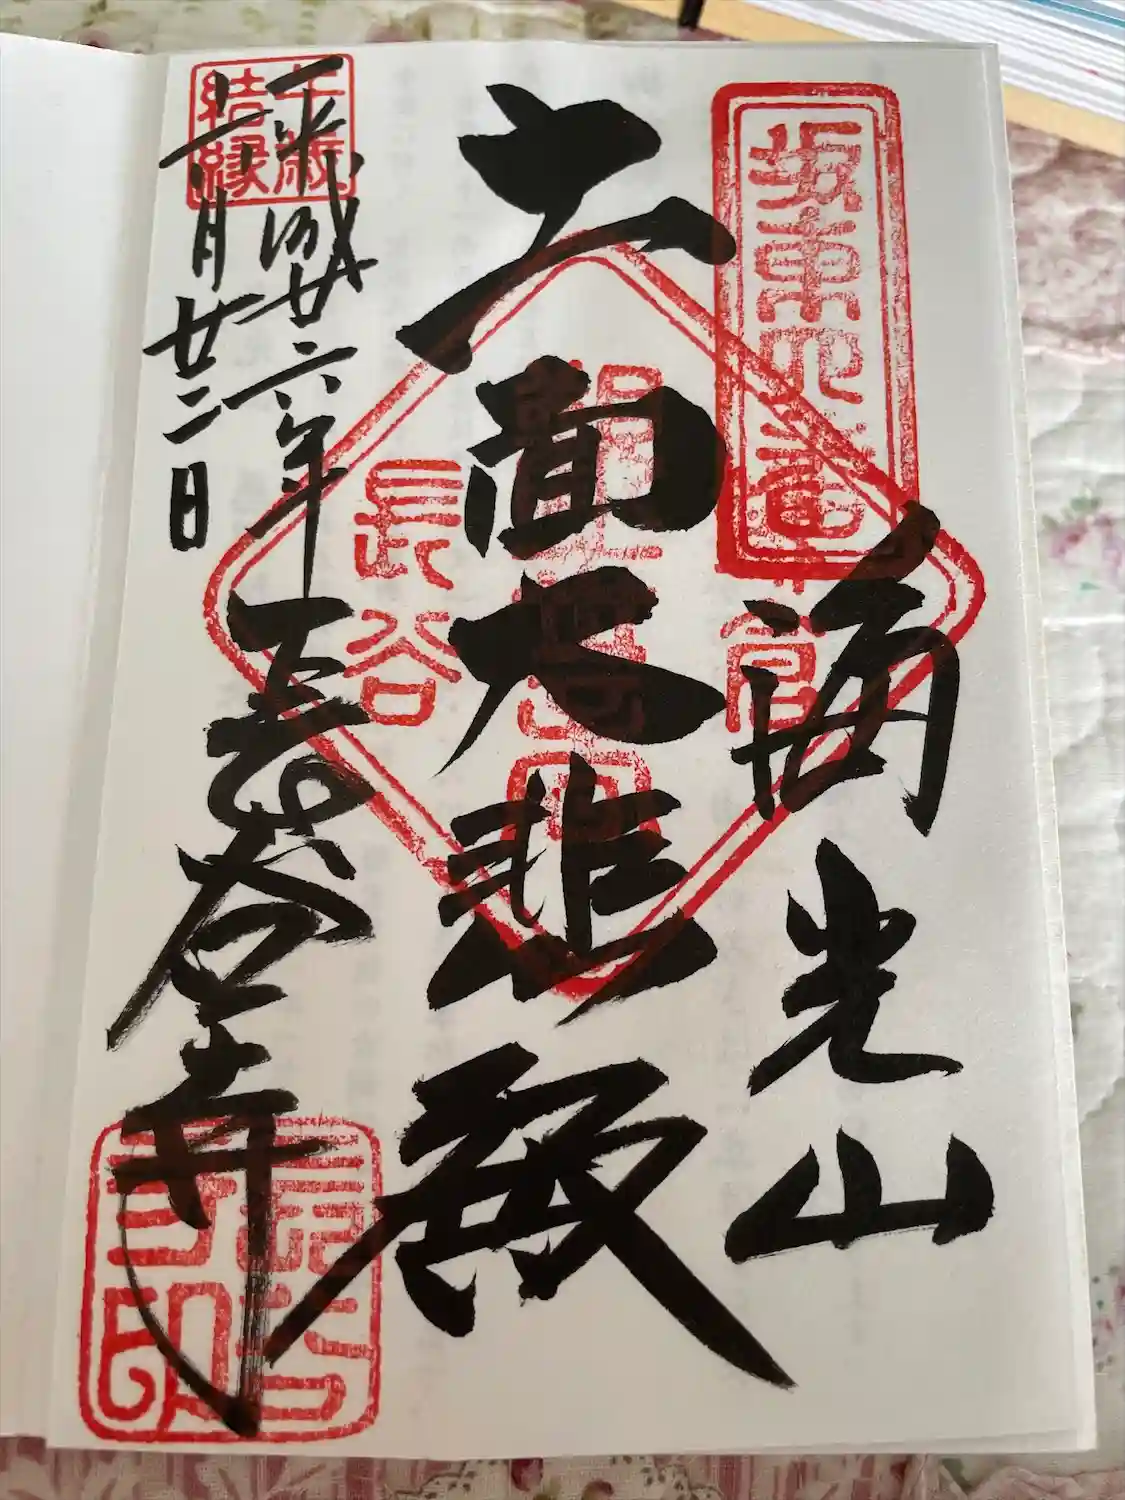 坂東四番
海光山
十一面大悲殿
長谷
午歳
結縁
平成廿六年
月廿二日
長谷寺
長谷
寺印